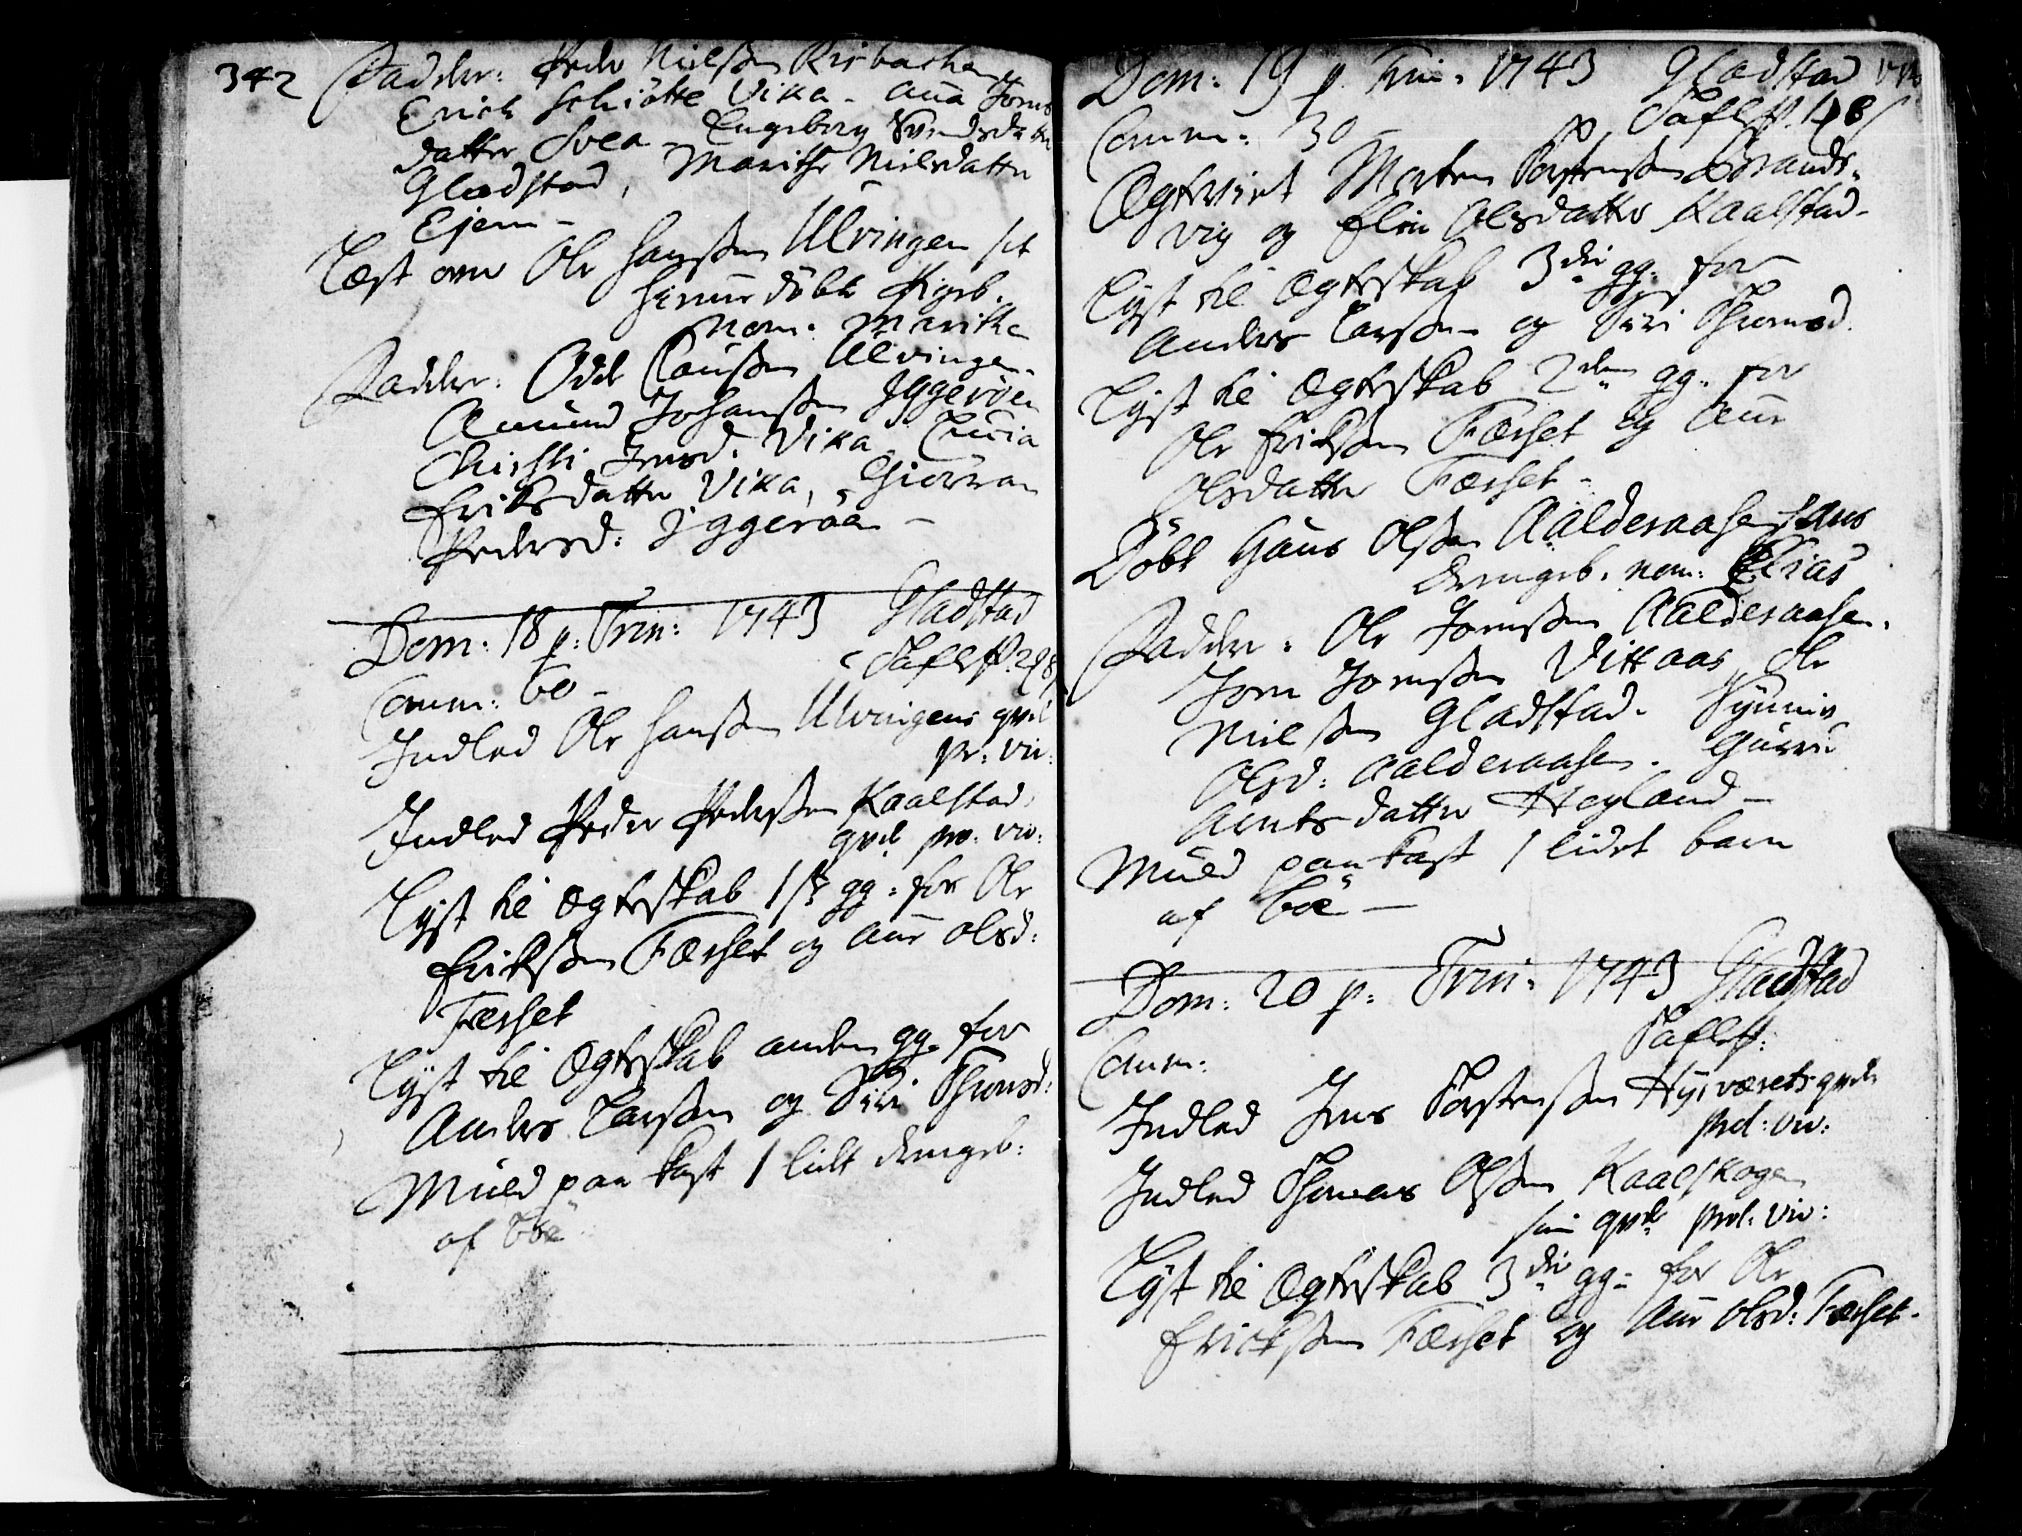 342
Fadder: Peder Nielsen Risbachen
Erich Schiötte Vika - Anna Jons
datter Svea - Engeborg Svendsdatter
Gladstad, Marithe Nielsdatter
Ejem -
Læst over Ole Hanssen Ulvingen sit
hiemmedöbte Pigeb.
Nom. Marithe
Fadder: Odde Claussen Ulvingen
Amund Johanssen Iggeröen
Chirsti Jensd. Vika Lucia
Eriksdatter Vika,
Pedersd: Iggeröen -
Dom: 18 p: Trin: 1743 Gladstad
Comm: 60 -
Indled Ole Hanssen Ulvingens qvd
pr: vir:
Indled Peder Pederssen Kaalstad
qvd pr: vir:
Lyst til Ægteskab 1ste gg: for Ole
Erikssen Færset og Ane Olsd:
Færset
Lyst til Ægteskab anden gg. for
Anders Larssen og Siri Thomsd:
Muld paa kast 1 lidt drengeb:
af böe
Dom: 19 p. Trin: 1743 Gladstad
Comm: 30 -
Ægteviet Morten Torstenssen Brands-
vig og Elen Olsdatter Kaalstad -
Lyst til Ægteskab 3die gg: for
Anders Larssen og Siri Thomsd.
Lyst til Ægteskab 2den gg: for
Ole Erikssen Færset og Ane
Olsdatter Færset -
Döbt Hans Olssen Aalderaasen hans
drengeb. nom: Elias
Fadder: Ole Jonssen Aalderaasen.
Jon Jonssen Vitkaas, Ole
Nielssen Gladstad. Synniv
Olsd: Aalderaasen. Gurru
Arntsdatter Hegland -
Muld paa kast 1 lidet barn
af böe -
Dom: 20 p: Trin: 1743 Gladstad
Comm:
Indled Jens Torstenssen Hysværets qvd
prol: vir:
Indled Thomas Olssen Kaalskogen
sin qvd prol: vir:
Lyst til Ægteskab 3die gg: for Ole
Erickssen Færset og Ane Olsd: Færset.